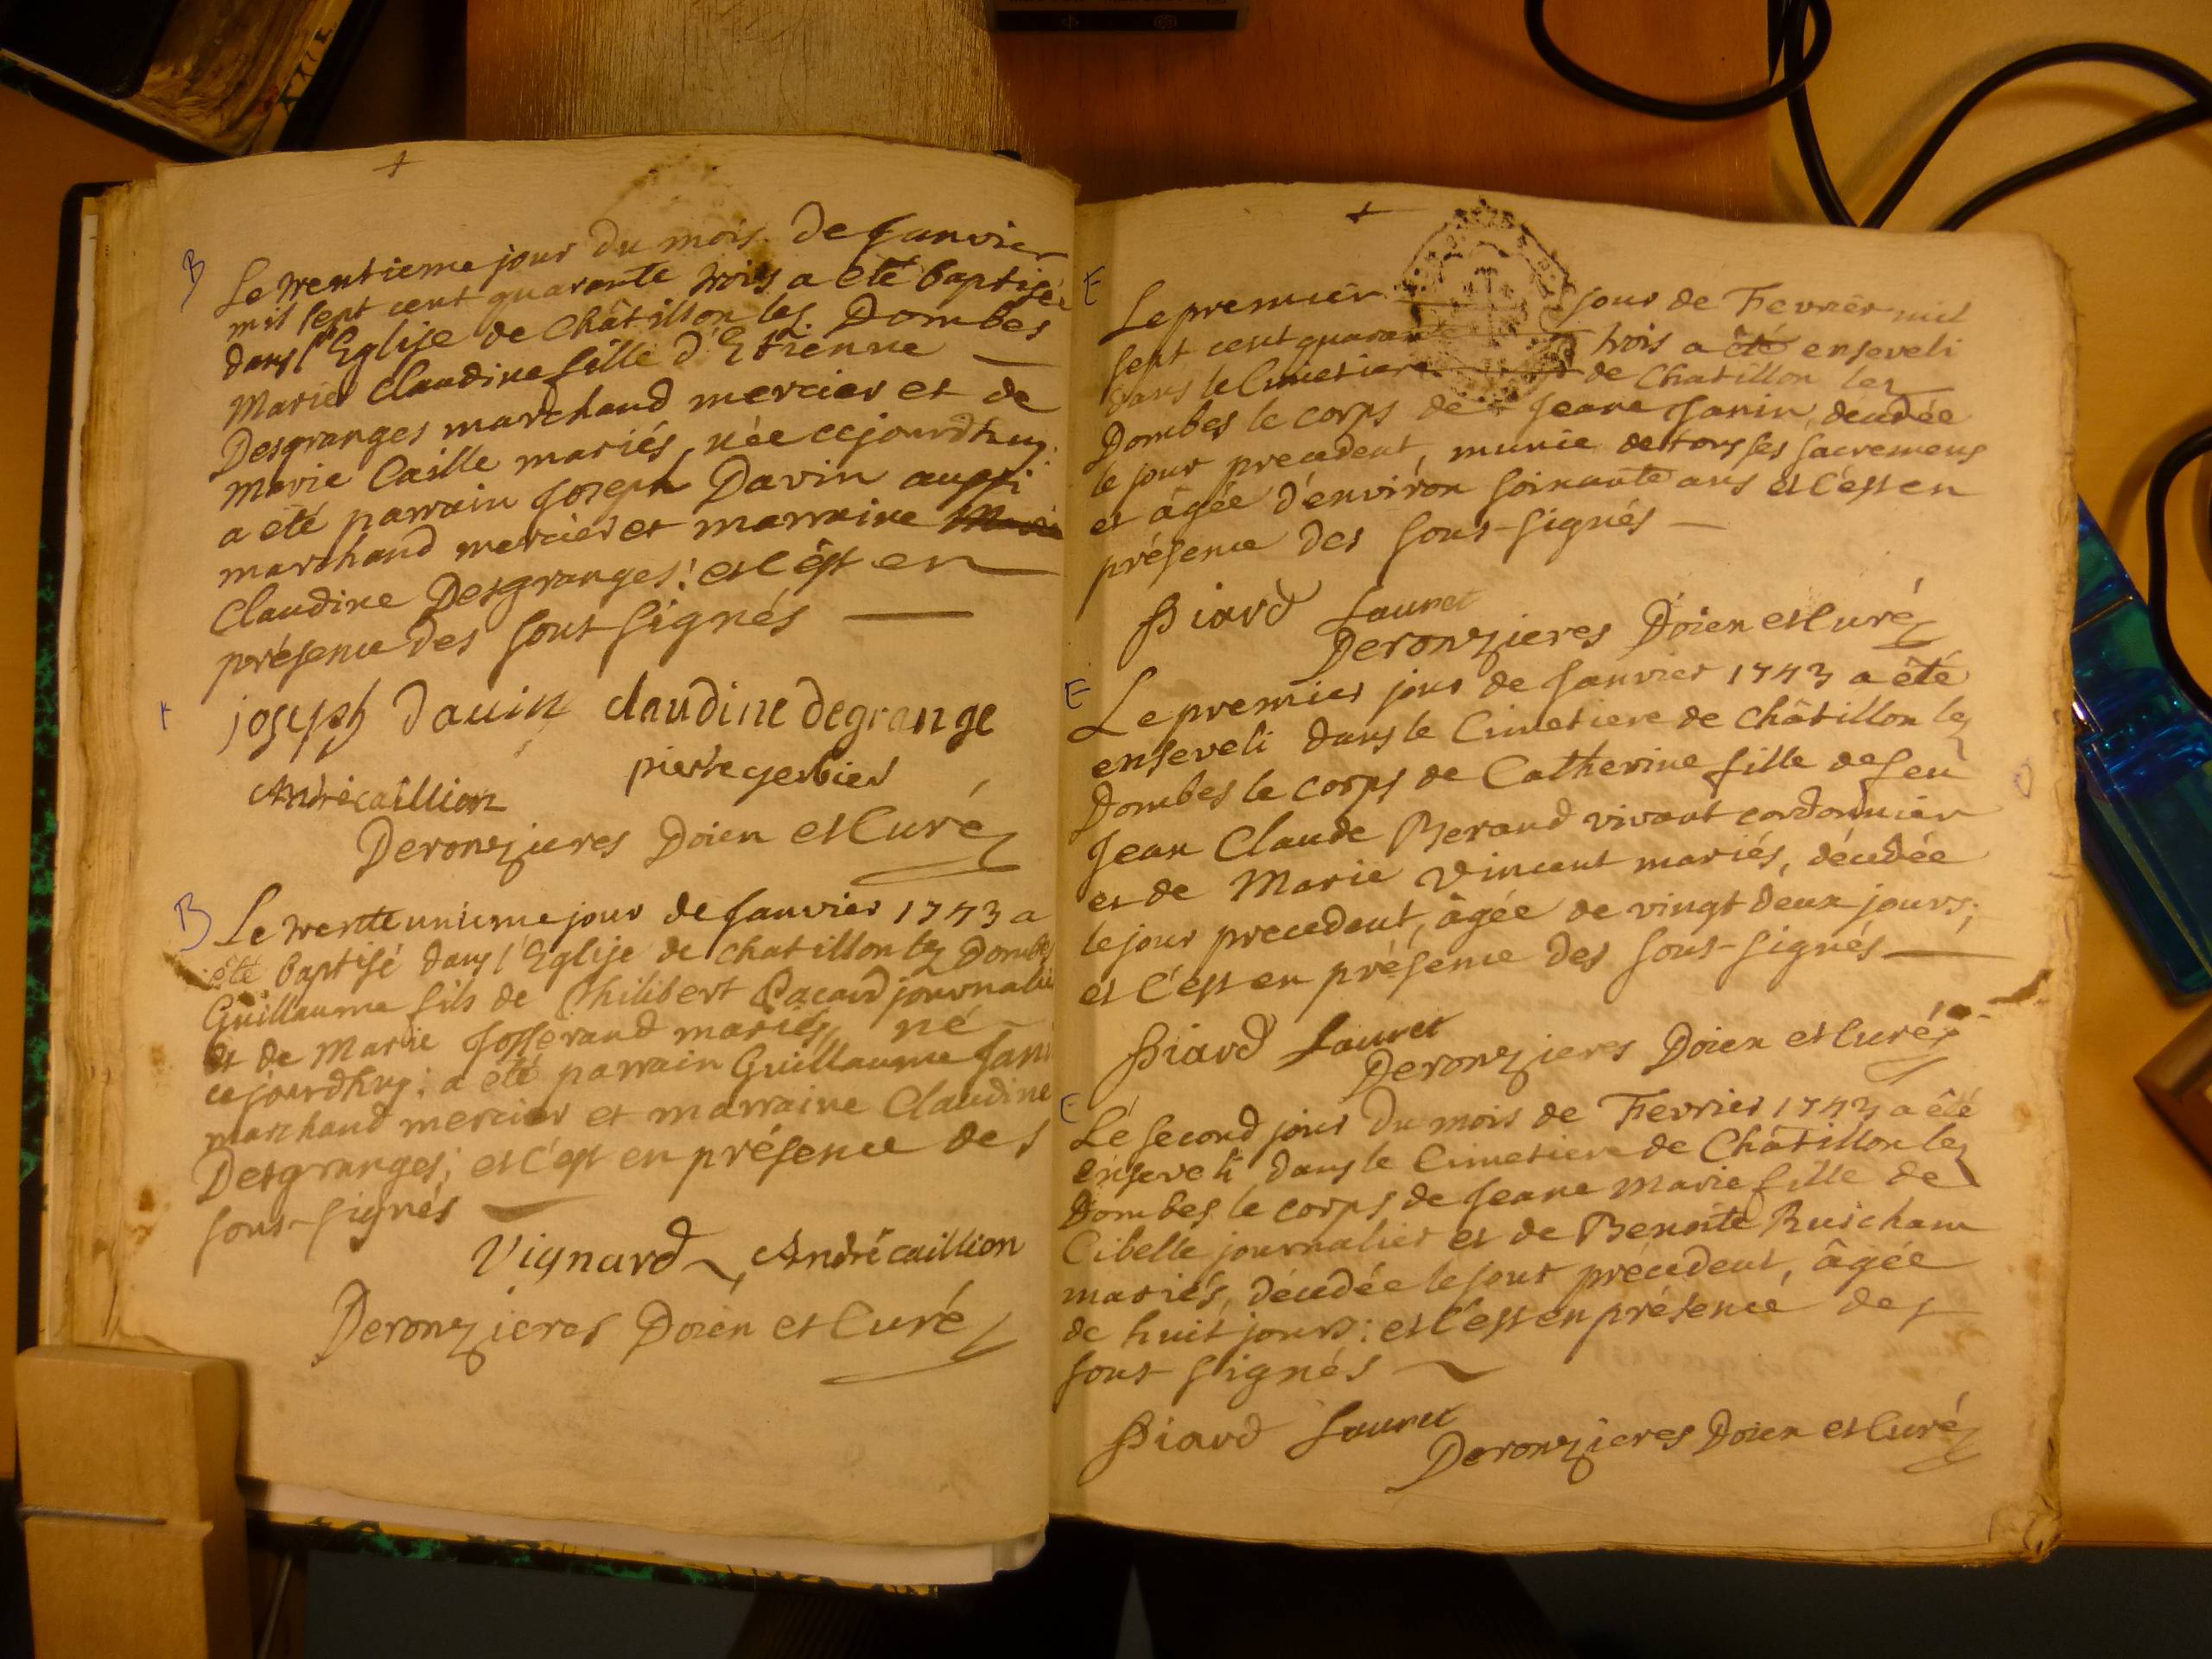 +
B
Le trentieme jour du mois de Janvier
mil sept cent quarante trois a eté baptisée
dans l'Eglise de Châtillon les Dombes
Marie Claudine fille d'Etienne
Desgranges marchand mercier et de
Marie Caille mariés, née cejourdhuy:
a eté parrain Joseph Davin aussi
marchand mercier et marraine
Claudine Desgranges: et c'est en
présence des sous-signés
joseph dauin claudine degrange
André caillion pierre gerbier
Deronzieres Doien et Curé
B
Le trente unieme jour de Janvier 1743 a
été baptisé dans l'Eglise de Chatillon les Dombes
Guillaume fils de Philibert Pacard journalier
et de Marie Josserand mariés, né
cejourdhuy: a eté parrain Guillaume
marchand mercier et marraine Claudine
Desgranges; et c'est en présence des
sous-signés
Vignard André caillion
Deronzieres Doien et Curé
+
E
Le premier jour de Fevrier mil
sept cent quarante trois a été enseveli
dans le Cimetiere de Chatillon les
Dombes le corps de Jeane Janin, décédée
le jour precedent, munie de tous ses sacremens
et âgée d'environ soixante ans et c'est en
présence des sous-signés
Biard Lauret
Deronzieres Doien et Curé
E
Le premier jour de Janvier 1743 a êté
enseveli dans le Cimetiere de Châtillon les
Dombes le corps de Catherine fille de feu
Jean Claude Beraud vivant cordonnier
et de Marie Vincent mariés, décédée
le jour precedent, âgée de vingt deux jours;
et c'est en présence des sous-signés
Biard Lauret
Deronzieres Doien et Curé
E
Le second jour du mois de Fevrier 1743 a êté
enseveli dans le Cimetiere de Châtillon les
Dombes le corps de Jeane Marie fille de
Cibelle journalier et de Benoite Ruicham
mariés, décédée le jour précedent, âgée
de huit jours: et c'est en présence des
sous-signés
Biard Lauret
Deronzieres Doien et Curé